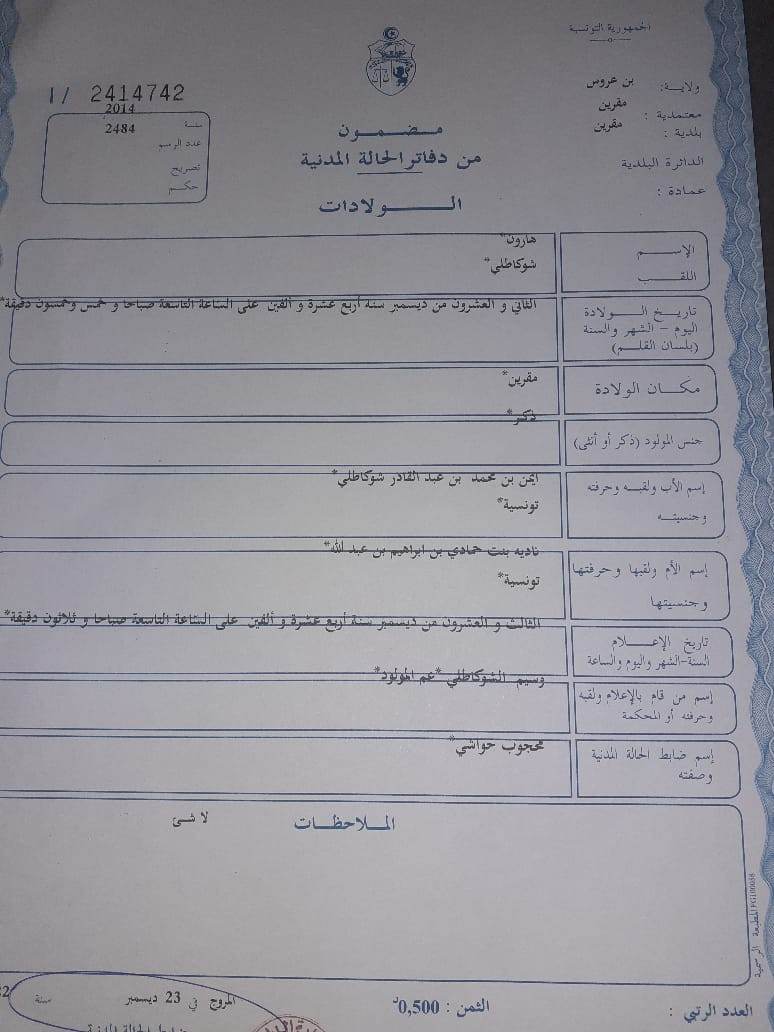 الجمهورية التونسية
ولاية: بن عروس
معتمدية : مقرين
بلدية : مقرين
الدائرة البلدية
عمادة :
مضمون
من دفاتر الحالة المدنية
الولادات
I / 2414742
سنة 2014
عدد الرسم 2484
تصريح
حكم
الإسم هارون*
اللقب شوكاطلي*
تاريخ الولادة
اليوم - الشهر والسنة
(بلسان القلم)
الثاني و العشرون من ديسمبر سنة أربع عشرة و ألفين على الساعة التاسعة صباحا و خمس وخمسون دقيقة*
مكان الولادة مقرين*
جنس المولود (ذكر أو أنثى) ذكر*
إسم الأب ولقبه وحرفته أيمن بن محمد بن عبد القادر شوكاطلي*
وجنسيته تونسية*
إسم الأم ولقبها وحرفتها ناديه بنت حمادي بن ابراهيم بن عبد الله*
وجنسيتها تونسية*
تاريخ الإعلام
السنة-الشهر واليوم والساعة
الثالث و العشرون من ديسمبر سنة أربع عشرة و ألفين على الساعة التاسعة صباحا و ثلاثون دقيقة*
إسم من قام بالإعلام ولقبه
وحرفته أو المحكمة
وسيم الشوكاطلي *عم المولود*
إسم ضابط الحالة المدنية
وصفته
محجوب حواشي*
الملاحظات
لا شئ
المطبعة الرسمية PG100038
العدد الرتبي :
الثمن : 0,500د
المروج في 23 ديسمبر سنة
ضابط الحالة المدنية